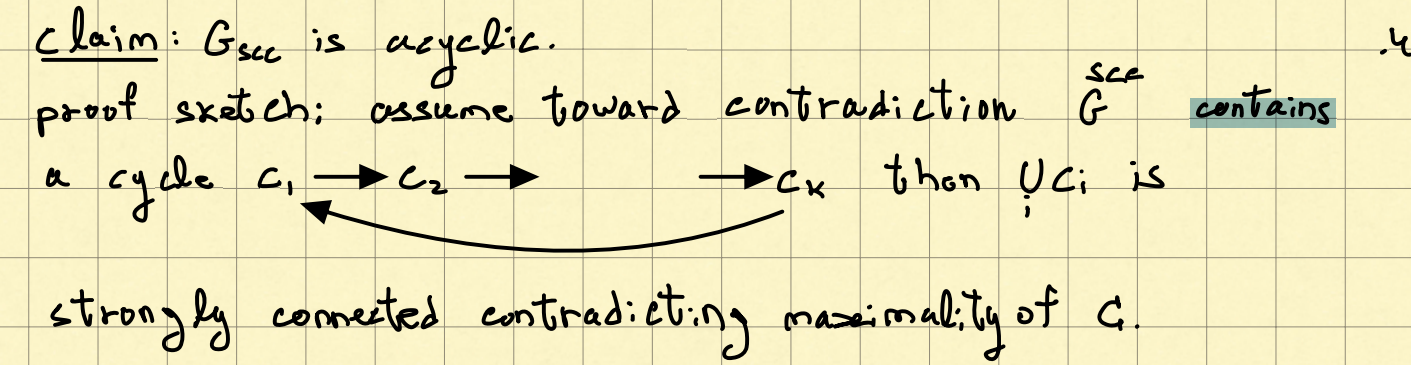 Claim: G_scc is acyclic.
proof sketch: assume toward contradiction G^scc contains
a cycle C₁ → C₂ → → Cₖ then ∪ᵢ Cᵢ is
strongly connected contradicting maximality of Cᵢ.